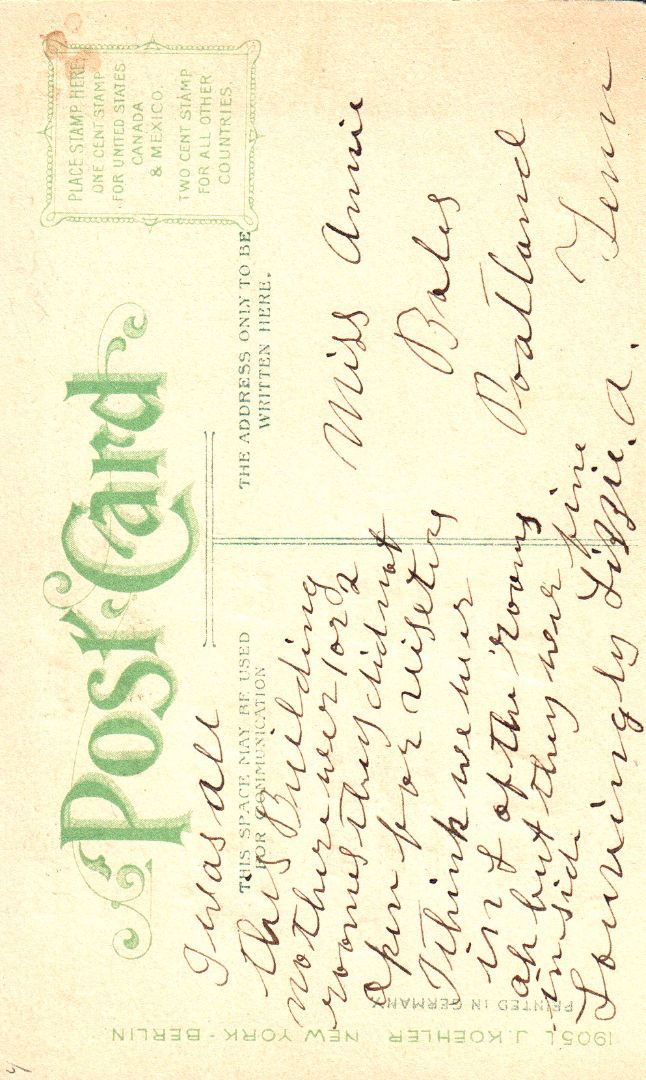 Post Card
PLACE STAMP HERE
ONE CENT STAMP
FOR UNITED STATES
CANADA
& MEXICO.
TWO CENT STAMP
FOR ALL OTHER
COUNTRIES.
THIS SPACE MAY BE USED
FOR COMMUNICATION
THE ADDRESS ONLY TO BE
WRITTEN HERE.
I was all
this Building
no there wer 1 or 2
rooms they did not
open for viseters
I think we wer
in of the rooms
ah but they wer fine
in side
Lovingly Lizzie. A.
Miss Annie
Bales
Poatland
Tenn
PRINTED IN GERMANY
1905 L J. KOEHLER NEW YORK - BERLIN